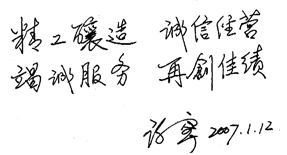 精工釀造 诚信经营
竭诚服务 再創佳績
2007.1.12